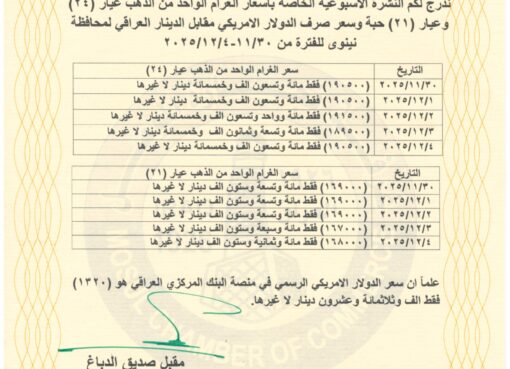 ندرج لكم النشرة الاسبوعية الخاصة بأسعار الغرام الواحد من الذهب عيار (٢٤)
وعيار (٢١) حبة وسعر صرف الدولار الامريكي مقابل الدينار العراقي لمحافظة
نينوى للفترة من ١١/٣٠-٢٠٢٥/١٢/٤
التاريخ سعر الغرام الواحد من الذهب عيار (٢٤)
٢٠٢٥/١١/٣٠ (١٩٠٥٠٠) فقط مائة وتسعون الف وخمسمائة دينار لا غيرها
٢٠٢٥/١٢/١ (١٩٠٥٠٠) فقط مائة وتسعون الف وخمسمائة دينار لا غيرها
٢٠٢٥/١٢/٢ (١٩١٥٠٠) فقط مائة وواحد وتسعون الف وخمسمائة دينار لا غيرها
٢٠٢٥/١٢/٣ (١٨٩٥٠٠) فقط مائة وتسعة وثمانون الف وخمسمائة دينار لا غيرها
٢٠٢٥/١٢/٤ (١٩٠٥٠٠) فقط مائة وتسعون الف وخمسمائة دينار لا غيرها
التاريخ سعر الغرام الواحد من الذهب عيار (٢١)
٢٠٢٥/١١/٣٠ (١٦٩٠٠٠) فقط مائة وتسعة وستون الف دينار لا غيرها
٢٠٢٥/١٢/١ (١٦٩٠٠٠) فقط مائة وتسعة وستون الف دينار لا غيرها
٢٠٢٥/١٢/٢ (١٦٩٠٠٠) فقط مائة وتسعة وستون الف دينار لا غيرها
٢٠٢٥/١٢/٣ (١٦٧٠٠٠) فقط مائة وسبعة وستون الف دينار لا غيرها
٢٠٢٥/١٢/٤ (١٦٨٠٠٠) فقط مائة وثمانية وستون الف دينار لا غيرها
علماً ان سعر الدولار الامريكي الرسمي في منصة البنك المركزي العراقي هو (١٣٢٠)
فقط الف وثلاثمائة وعشرون دينار لا غيرها.
مقبل صديق الدباغ
MOSUL CHAMBER OF COM